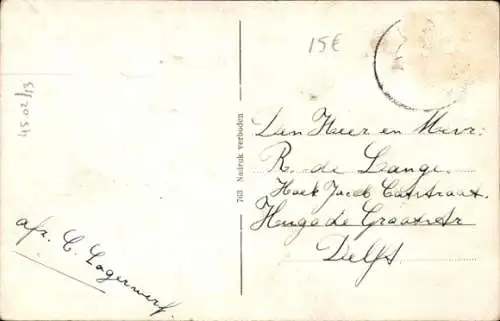 15€
4502/13
763 Nadruk verboden
Den Heer en Mevr:
R. de Lange.
Hoek Jacob Catsstraat.
Hugo de Grootstr
Delft
afz. C. Lagerwerf.